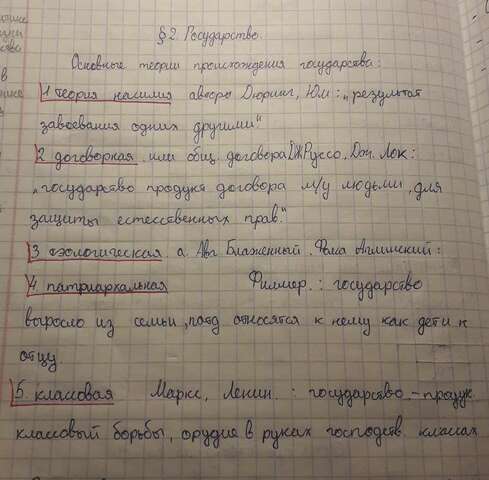 §2. Государство.
Основные теории происхождения государства:
1 теория насилия авторы Дюринг, Юм: „результат
завоевания одних другими“
2 договорная или общ. договора Ж.Руссо, Дж. Лок:
„государство продукт договора м/у людьми, для
защиты естесственных прав“
3 теологическая а. Авг Блаженный. Фома Аквинский:
4 патриархальная Филмер.: государство
выросло из семьи, относятся к нему как дети к
отцу
5. классовая Маркс, Ленин.: государство - продук
классовый борьбы, орудие в руках господств. классах